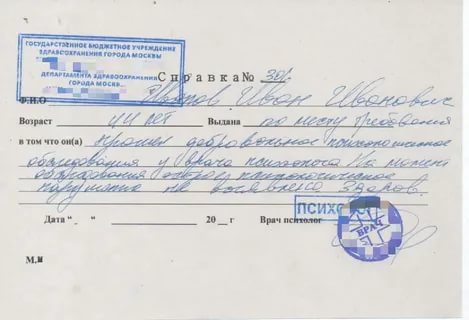 ГОСУДАРСТВЕННОЕ БЮДЖЕТНОЕ УЧРЕЖДЕНИЕ
ЗДРАВООХРАНЕНИЯ ГОРОДА МОСКВЫ
ДЕПАРТАМЕНТА ЗДРАВООХРАНЕНИЯ
ГОРОДА МОСКВ
Справка №
Ф.И.О Иванов Иван Иванович
Возраст 44 лет Выдана по месту требования
в том что он(а) прошел добровольное психологическое
обследования у врача психолога На момент
обследования острое психологическое
нарушение не выявлено. Здоров.
Дата “ ” 20 г Врач психолог ПСИХО
ВРАЧ
М.П